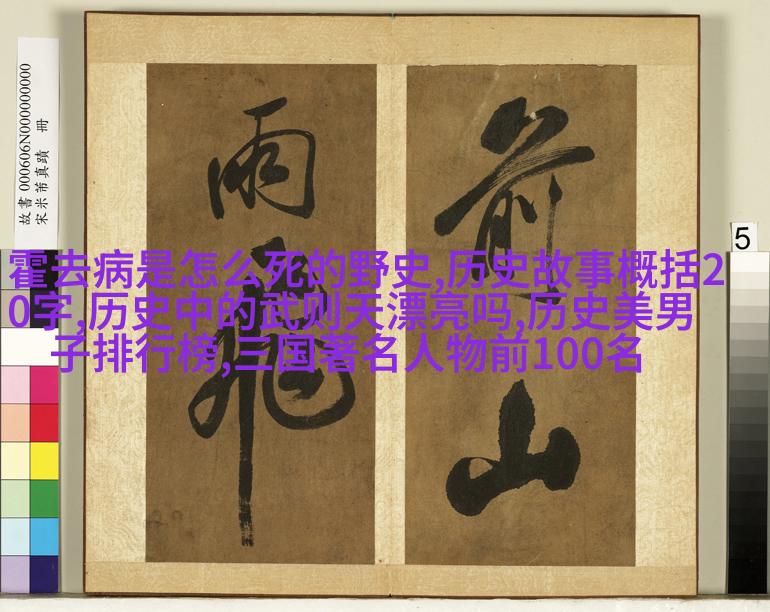 故書 000606N000000000
宋米芾真蹟 冊
前山
雨飛
5
霍去病是怎么死的野史,历史故事概括2
0字,历史中的武则天漂亮吗,历史美男
子排行榜,三国著名人物前100名